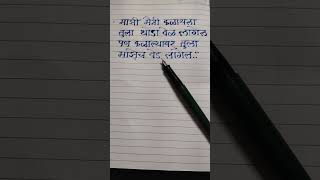 माझी मैत्री कळायला
तुला थोडा वेळ लागेल
पण कळाल्यावर तुला
माझंच वेड लागेल..